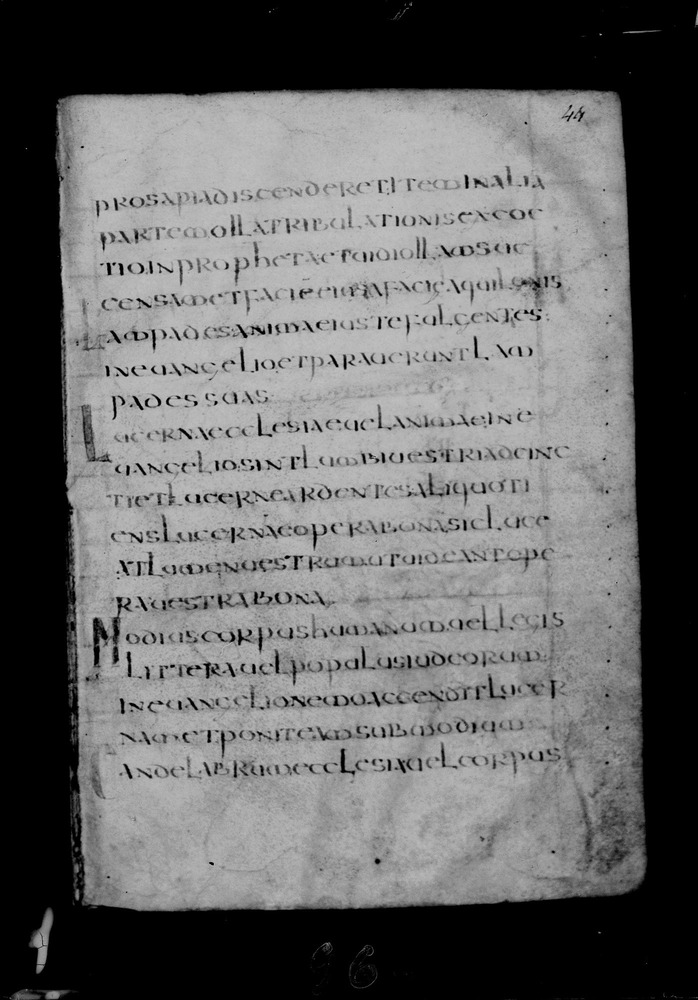 44
PROSAPIADISCENDERETITEMINALIA
PARTEMOLLATRIBULATIONISEXCOC
TIOINPROPHETAETUIDIOLLAMSUC
CENSAMETFACIĒEIUSAFACIEAQUILONIS
LAMPADESANIMAEIUSTEFULGENTES:
INEUANGELIOETPARAUERUNTLAM
PADESSUAS
LUCERNAECCLESIAEUELANIMAEINE
UANGELIOSINTLUMBIUESTRIADCINC
TIETLUCERNEARDENTESALIQUOTI
ENSLUCERNAEOPERABONASICLUCE
ATLUMENUESTRUMUTUIDEANTOPE
RAUESTRABONA
MODIUSCORPUSHUMANUMUELLEGIS
LITTERAUELPOPULUSIUDEORUM
INEUANGELIONEMOACCENDITLUCER
NAMETPONITEAMSUBMODIUM
CANDELABRUMECCLESIAUELCORPUS
96